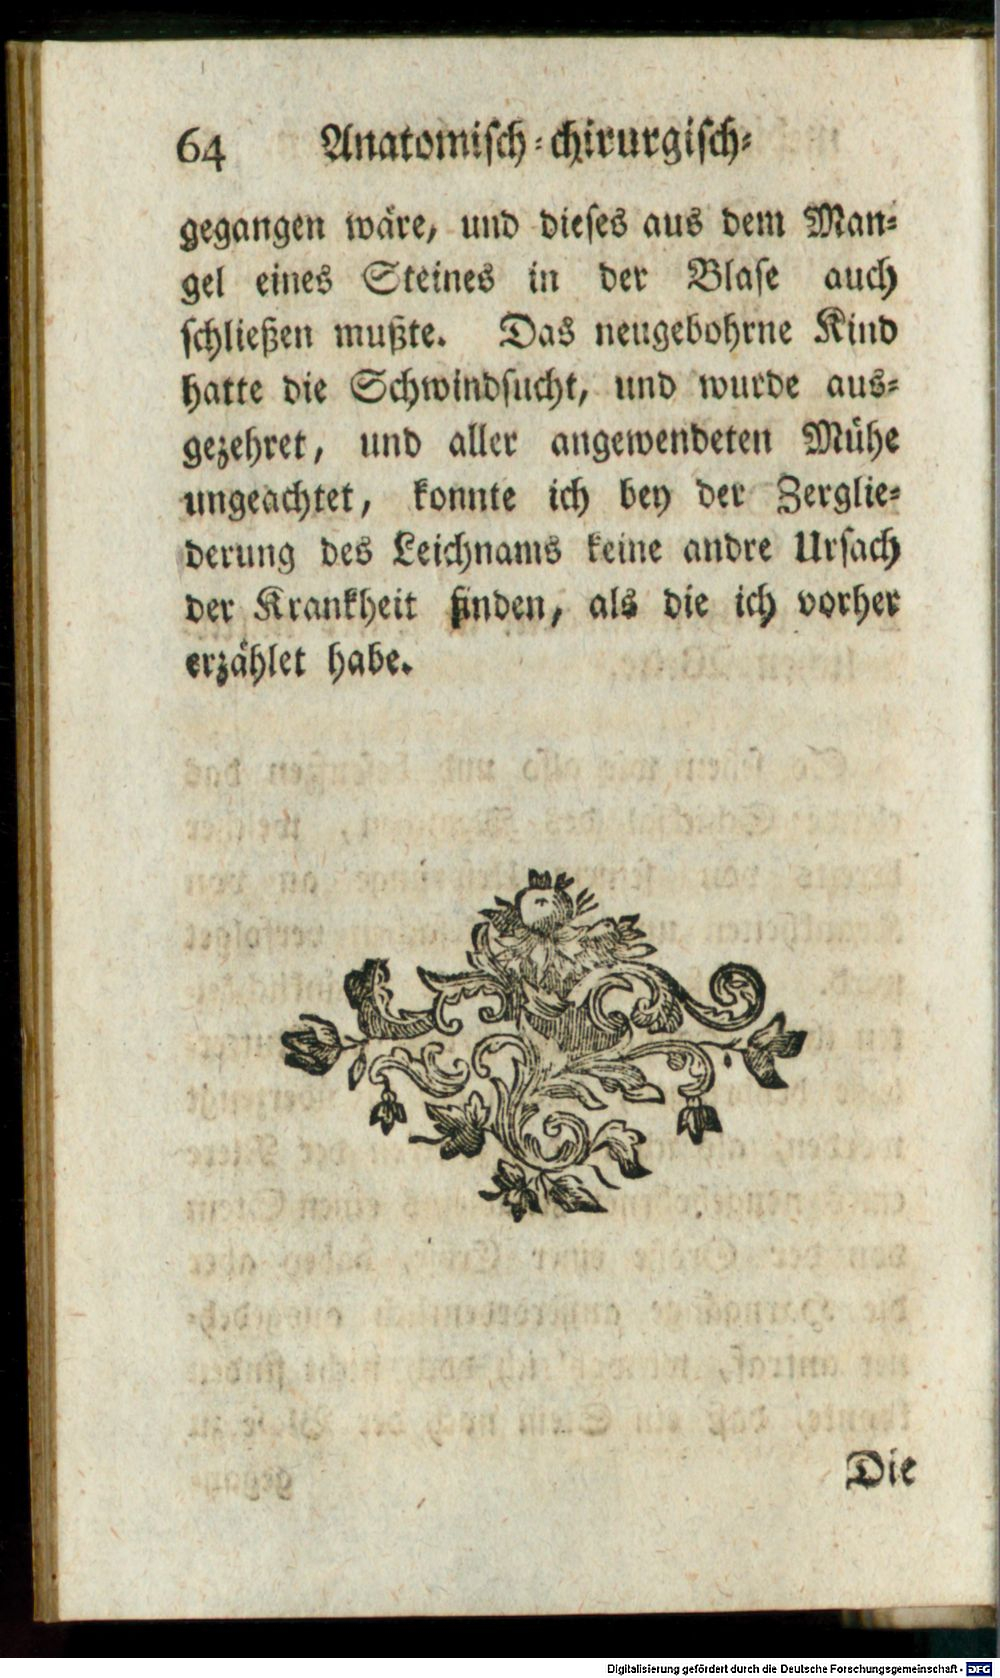 64 Anatomisch-chirurgisch-
gegangen wäre, und dieses aus dem Man-
gel eines Steines in der Blase auch
schließen mußte. Das neugebohrne Kind
hatte die Schwindsucht, und wurde aus-
gezehret, und aller angewendeten Mühe
ungeachtet, konnte ich bey der Zerglie-
derung des Leichnams keine andre Ursach
der Krankheit finden, als die ich vorher
erzählet habe.
Die
Digitalisierung gefördert durch die Deutsche Forschungsgemeinschaft - DFG